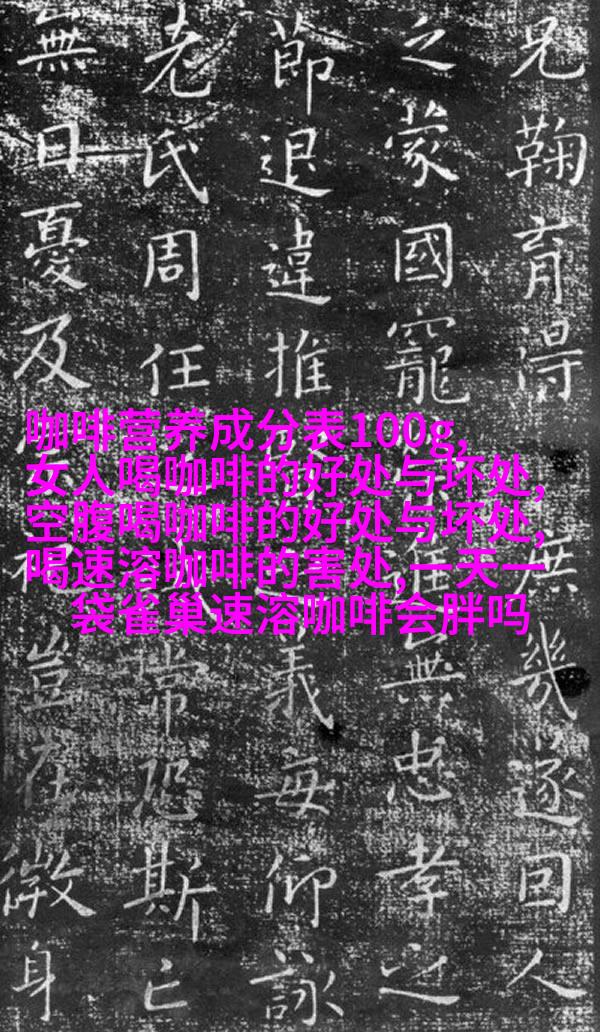 兄鞠育得庶幾遂因人
乏蒙國寵進無忠孝之
節退違推義每仰詠
老氏周任常恐斯亡
無日憂及豈在微身
咖啡营养成分表100g,
女人喝咖啡的好处与坏处,
空腹喝咖啡的好处与坏处,
喝速溶咖啡的害处,一天一
袋雀巢速溶咖啡会胖吗